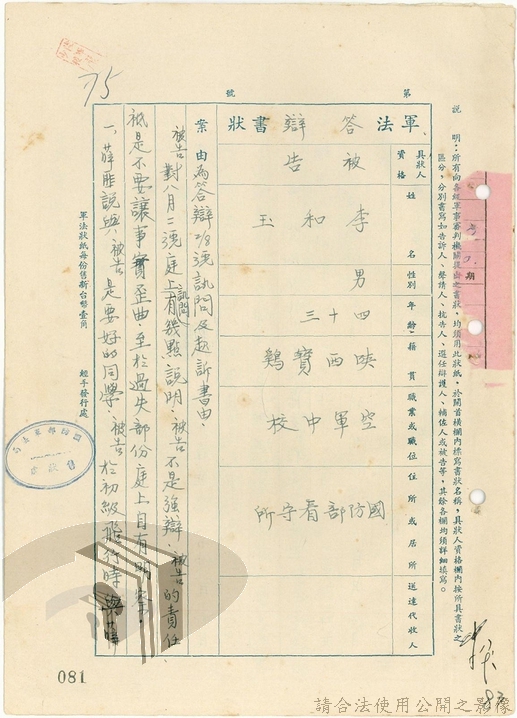 第 號
說 明：所有向各級軍事審判機關提出之書狀，均須用此狀紙，於開首橫欄內標寫書狀名稱，具狀人資格欄內按所具書狀之
區分，分別書寫如告訴人、聲請人、抗告人、選任辯護人、輔佐人或被告等，其餘各欄均須詳細填寫。
期
軍法答辯書狀
具狀人資格 被告
姓名 李和玉
性別 男
年齡 四十三
籍貫 陝西寶鷄
職業或職位 空軍中校
住所或居所 國防部看守所
送達代收人
案由 為答辯2/8號訊問及起訴書由。
被告對八月二號庭上訊問有幾點說明，被告不是強辯，被告的責任，
祇是不要讓事實歪曲至於過失部份庭上自有明察。
一、薛匪說與被告是要好的同學，被告於初級飛行時
軍法狀紙每份售新台幣壹角 經手發行處
75
081
請合法使用公開之影像